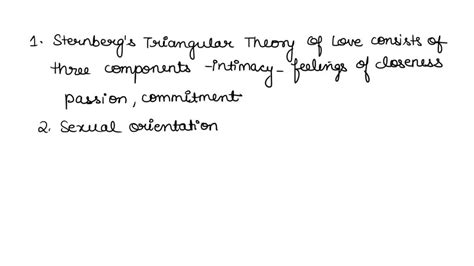 1. Sternberg's Triangular Theory of Love consists of
three components -intimacy- feelings of closeness
passion, commitment
2. Sexual orientation